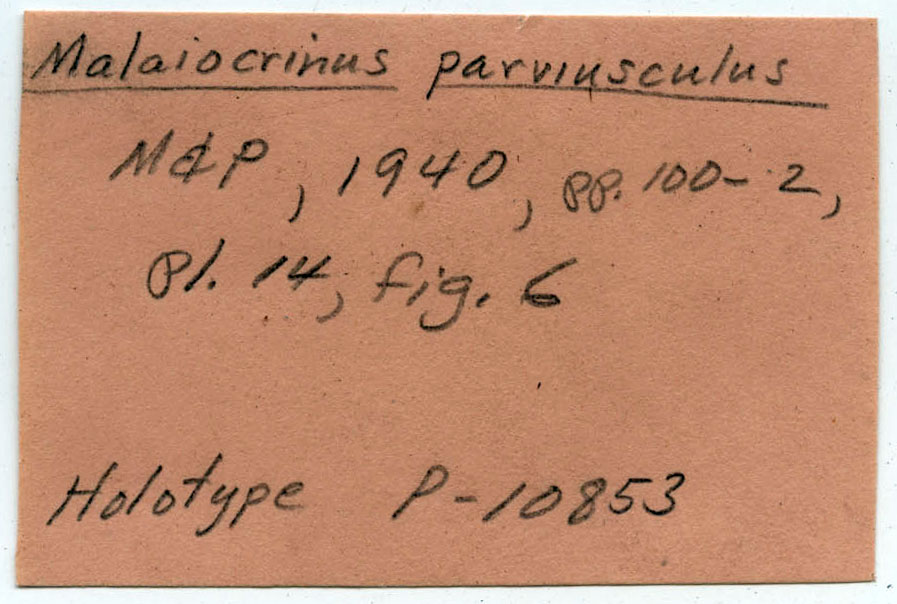 Malaiocrinus parviusculus
M&P, 1940, pp. 100-2,
pl. 14, fig. 6
Holotype P-10853